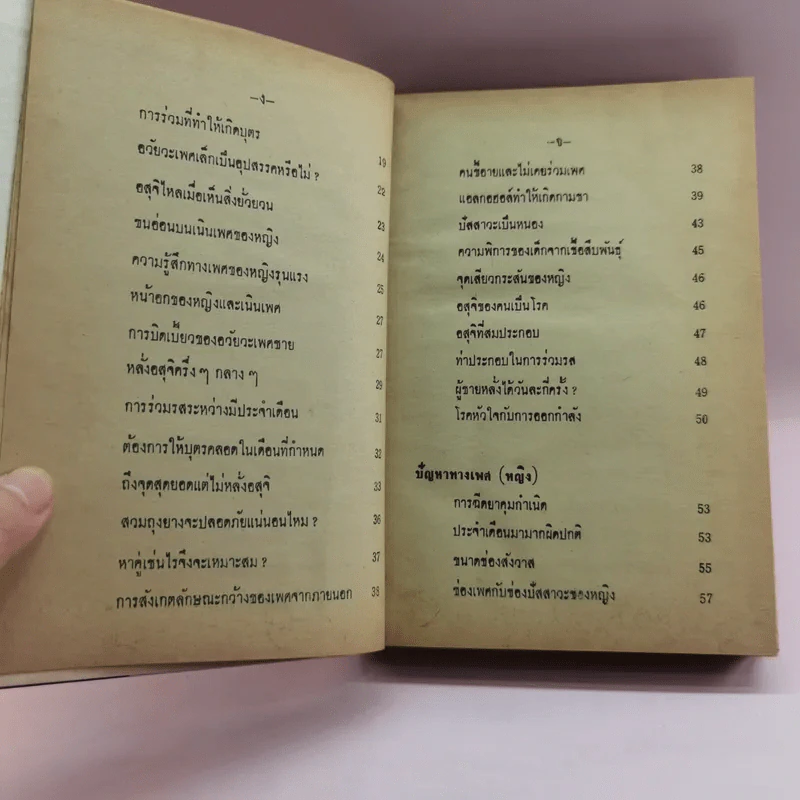 —ง—
การร่วมที่ทำให้เกิดบุตร
อวัยวะเพศเล็กเป็นอุปสรรคหรือไม่ ? 19
อสุจิไหลเมื่อเห็นสิ่งยั่วยวน 22
ขนอ่อนบนเนินเพศของหญิง 23
ความรู้สึกทางเพศของหญิงรุนแรง 24
หน้าอกของหญิงและเนินเพศ 25
การบิดเบี้ยวของอวัยวะเพศชาย 27
หลั่งอสุจิครึ่ง ๆ กลาง ๆ 27
การร่วมรสระหว่างมีประจำเดือน 29
ต้องการให้บุตรคลอดในเดือนที่กำหนด 31
ถึงจุดสุดยอดแต่ไม่หลั่งอสุจิ 32
สวมถุงยางจะปลอดภัยแน่นอนไหม ? 33
หาคู่เช่นไรจึงจะเหมาะสม ? 36
การสังเกตลักษณะกว้างของเพศจากภายนอก 37
38
—จ—
คนขี้อายและไม่เคยร่วมเพศ 38
แอลกอฮอล์ทำให้เกิดกามชา 39
ปัสสาวะเป็นหนอง 43
ความพิการของเด็กจากเชื้อสืบพันธุ์ 45
จุดเสียวกระสันของหญิง 46
อสุจิของคนเป็นโรค 46
อสุจิที่สมประกอบ 47
ท่าประกอบในการร่วมรส 48
ผู้ชายหลั่งได้วันละกี่ครั้ง ? 49
โรคหัวใจกับการออกกำลัง 50
ปัญหาทางเพศ (หญิง)
การฉีดยาคุมกำเนิด 53
ประจำเดือนมามากผิดปกติ 53
ขนาดช่องสังวาส 55
ช่องเพศกับช่องปัสสาวะของหญิง 57